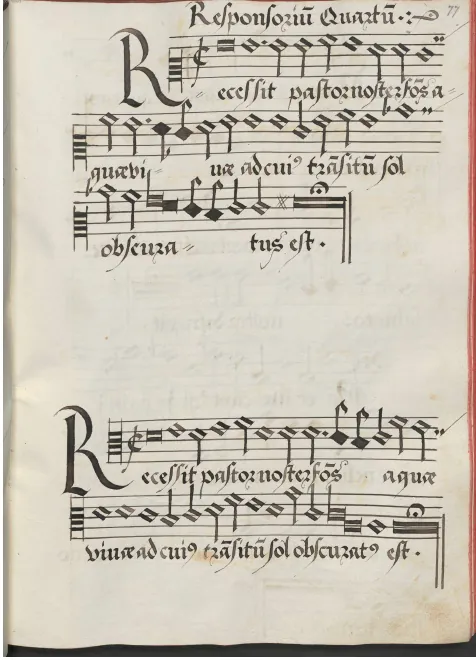 Responsoriũ Quartũ · :~
77
Recessit pastor noster fõs a-
quævi- uæ ad cui⁹ trãsitũ sol
obscura- tus est ·
Recessit pastor noster fõs aquæ
viuæ ad cui⁹ trãsitũ sol obscurat⁹ est ·